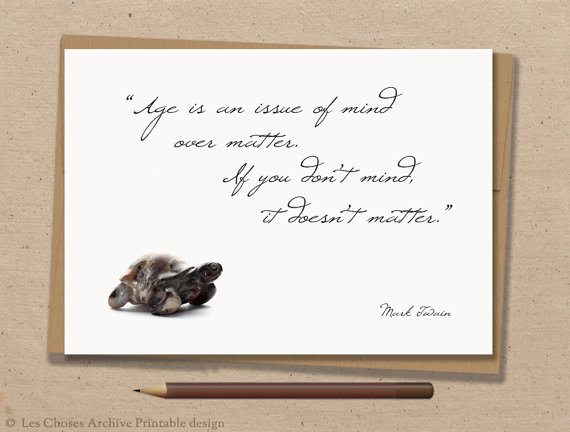 “Age is an issue of mind
over matter.
If you don’t mind,
it doesn’t matter.”
Mark Twain
© Les Choses Archive Printable design